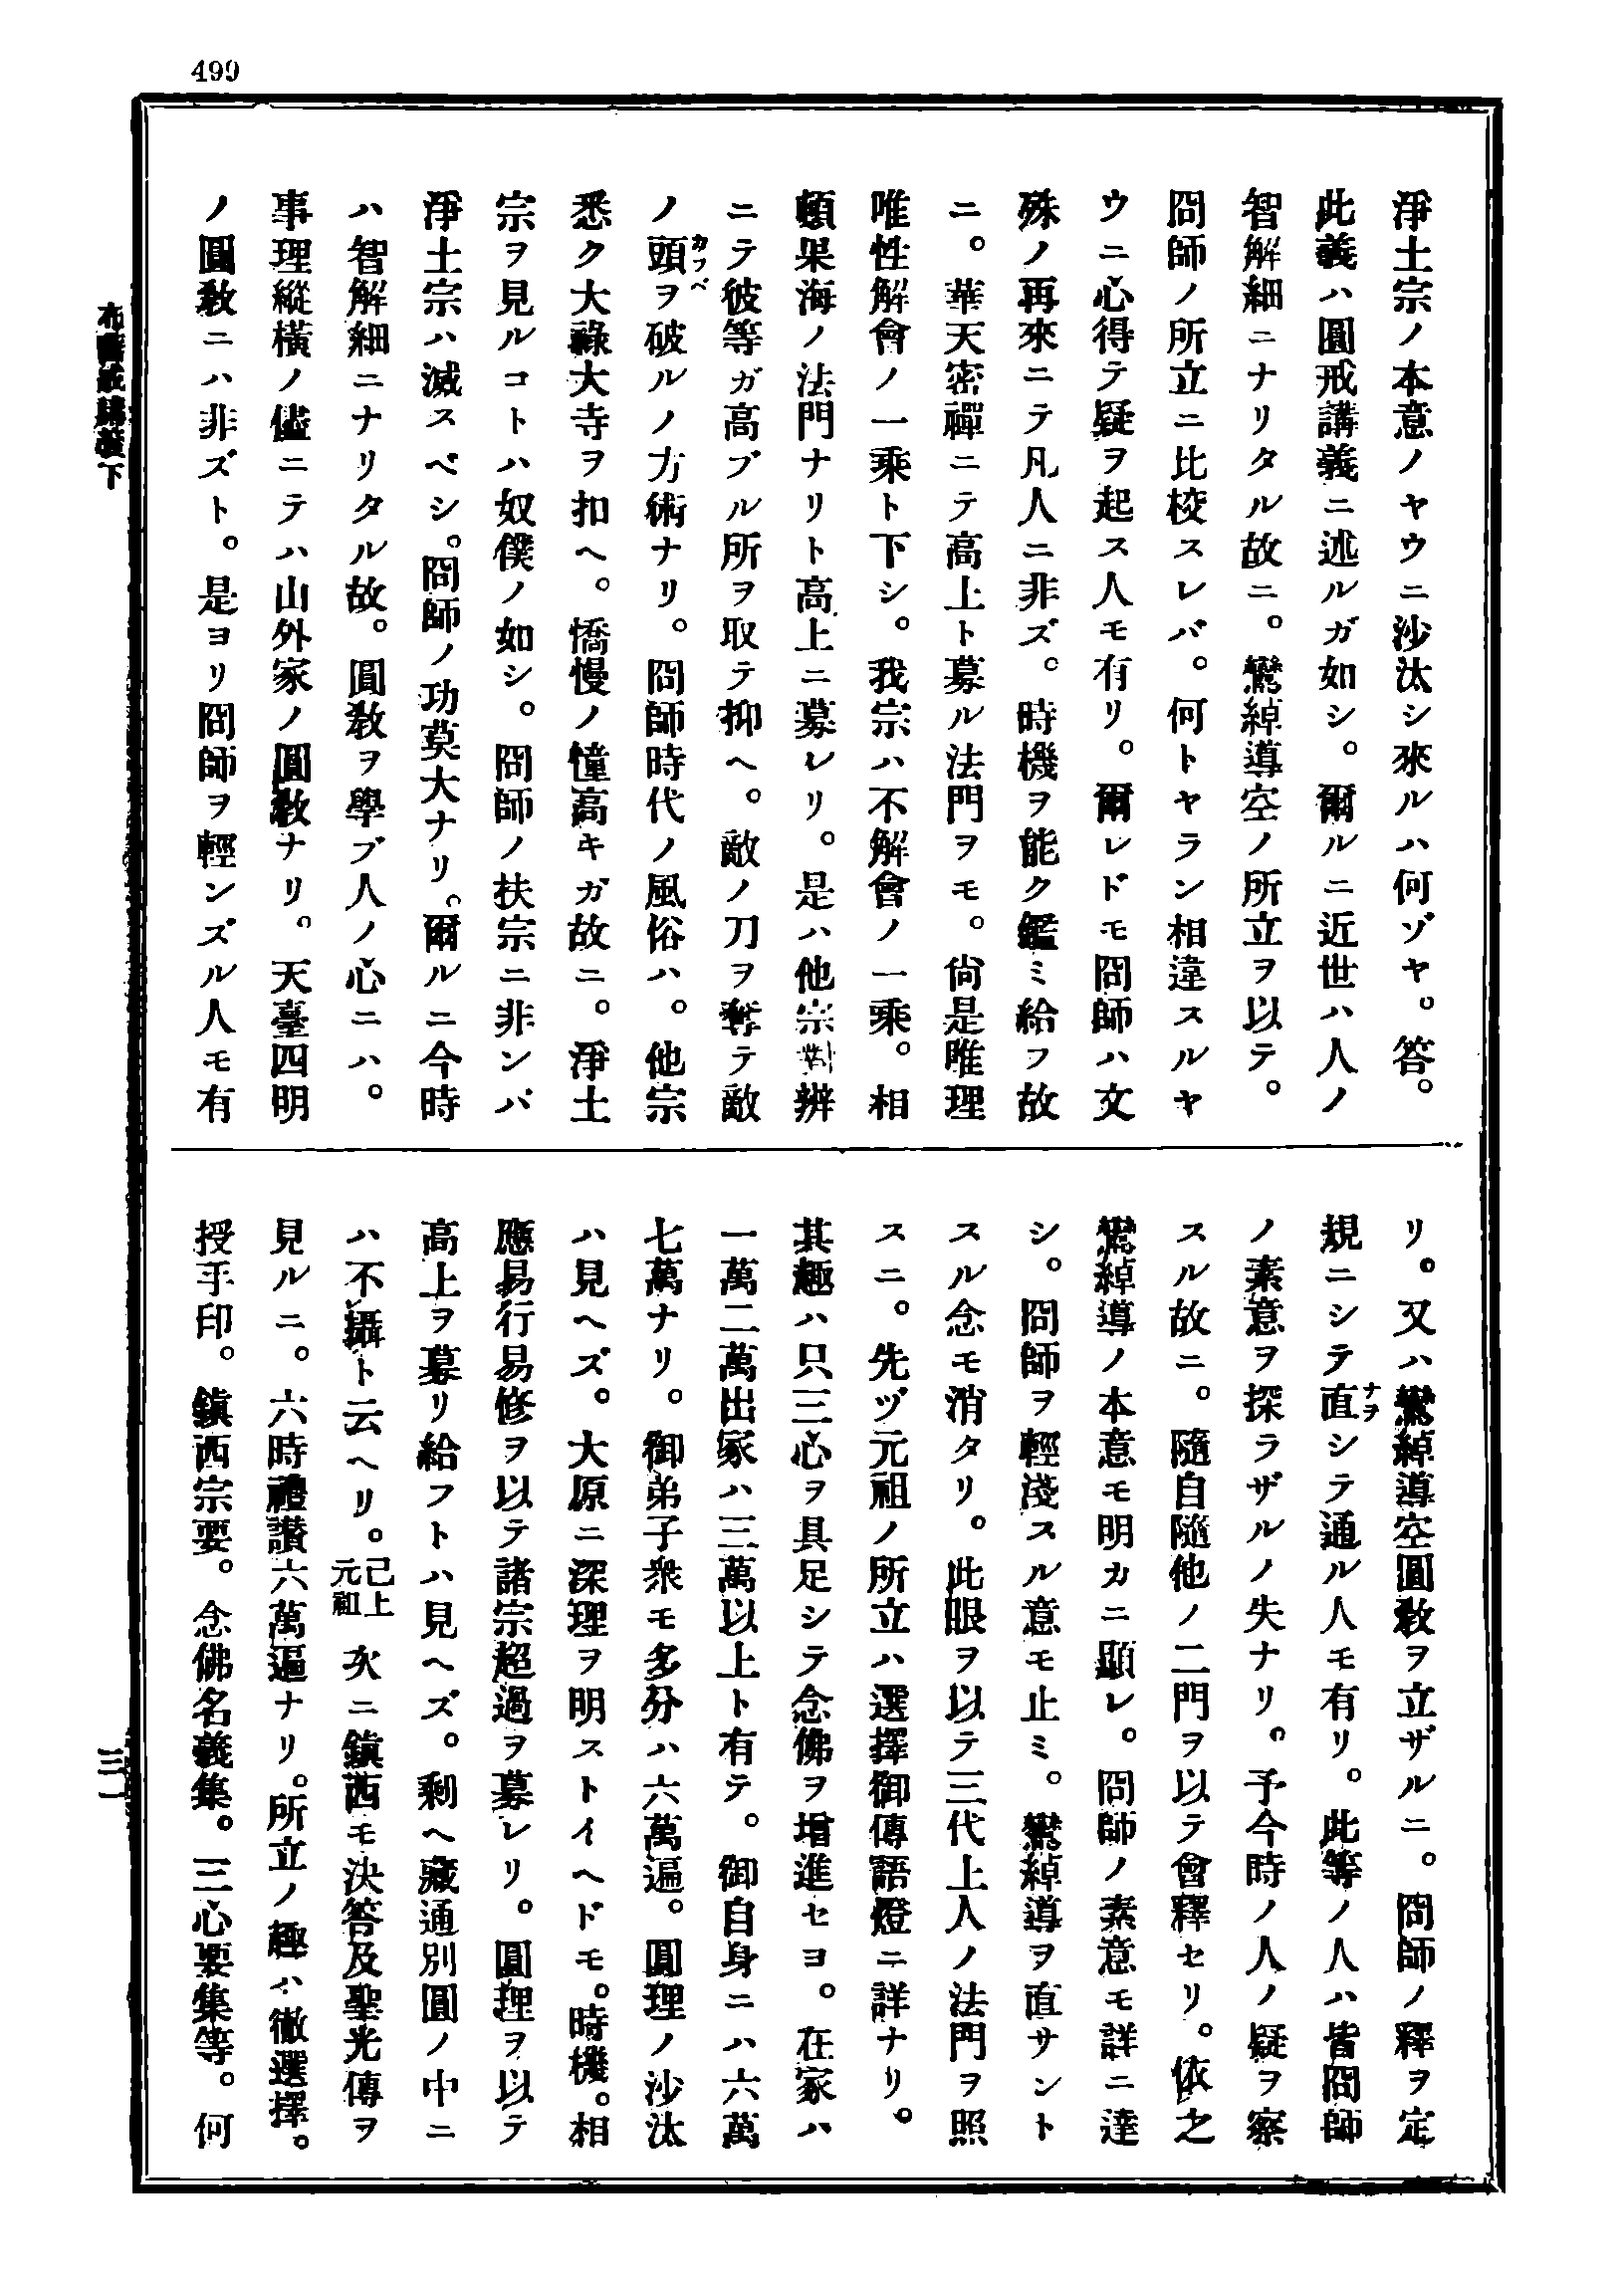 499
淨土宗ノ本意ノヤウニ沙汰シ來ルハ何ゾヤ。答。
此義ハ圓戒講義ニ述ルガ如シ。爾ルニ近世ハ人ノ
智解細ニナリタル故ニ。鸞綽導空ノ所立ヲ以テ。
冏師ノ所立ニ比校スレバ。何トヤラン相違スルヤ
ウニ心得テ疑ヲ起ス人モ有リ。爾レドモ冏師ハ文
殊ノ再來ニテ凡人ニ非ズ。時機ヲ能ク鑑ミ給フ故
ニ。華天密禪ニテ高上ト募ル法門ヲモ。尙是唯理
唯性解會ノ一乘ト下シ。我宗ハ不解會ノ一乘。相
頓果海ノ法門ナリト高上ニ募レリ。是ハ他宗對辨
ニテ彼等ガ高ブル所ヲ取テ抑ヘ。敵ノ刀ヲ奪テ敵
ノ頭カフベヲ破ルノ方術ナリ。冏師時代ノ風俗ハ。他宗
悉ク大祿大寺ヲ扣ヘ。憍慢ノ憧高キガ故ニ。淨土
宗ヲ見ルコトハ奴僕ノ如シ。冏師ノ扶宗ニ非ンバ
淨土宗ハ滅スベシ。冏師ノ功莫大ナリ。爾ルニ今時
ハ智解細ニナリタル故。圓敎ヲ學ブ人ノ心ニハ。
事理縱橫ノ儘ニテハ山外家ノ圓敎ナリ。天臺四明
ノ圓敎ニハ非ズト。是ヨリ冏師ヲ輕ンズル人モ有
リ。又ハ鸞綽導空圓敎ヲ立ザルニ。冏師ノ釋ヲ定
規ニシテ直ナヲシテ通ル人モ有リ。此等ノ人ハ皆冏師
ノ素意ヲ探ラザルノ失ナリ。予今時ノ人ノ疑ヲ察
スル故ニ。隨自隨他ノ二門ヲ以テ會釋セリ。依之
鸞綽導ノ本意モ明カニ顯レ。冏師ノ素意モ詳ニ達
シ。冏師ヲ輕淺スル意モ止ミ。鸞綽導ヲ直サント
スル念モ消タリ。此眼ヲ以テ三代上人ノ法門ヲ照
スニ。先ヅ元祖ノ所立ハ選擇御傳語燈ニ詳ナリ。
其趣ハ只三心ヲ具足シテ念佛ヲ增進セヨ。在家ハ
一萬二萬出家ハ三萬以上ト有テ。御自身ニハ六萬
七萬ナリ。御弟子衆モ多分ハ六萬遍。圓理ノ沙汰
ハ見ヘズ。大原ニ深理ヲ明ストイヘドモ。時機。相
應易行易修ヲ以テ諸宗超過ヲ募レリ。圓理ヲ以テ
高上ヲ募リ給フトハ見ヘズ。剩ヘ藏通別圓ノ中ニ
ハ不攝ト云ヘリ。已上元祖 次ニ鎭西モ決答及聖光傳ヲ
見ルニ。六時禮讚六萬遍ナリ。所立ノ趣ハ徹選擇。
授手印。鎭西宗要。念佛名義集。三心要集等。何
下
三一